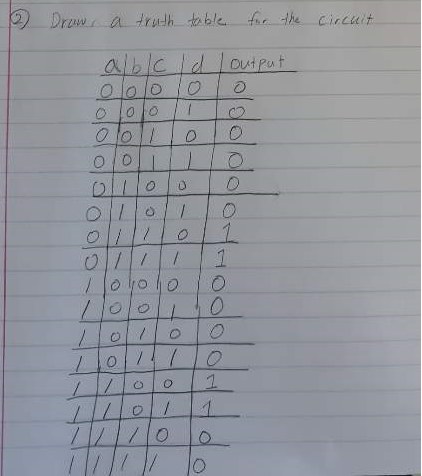 2) Draw a truth table for the circuit
a b c d output
0 0 0 0 0
0 0 0 1 0
0 0 1 0 0
0 0 1 1 0
0 1 0 0 0
0 1 0 1 0
0 1 1 0 1
0 1 1 1 1
1 0 0 0 0
1 0 0 1 0
1 0 1 0 0
1 0 1 1 0
1 1 0 0 1
1 1 0 1 1
1 1 1 0 0
1 1 1 1 0